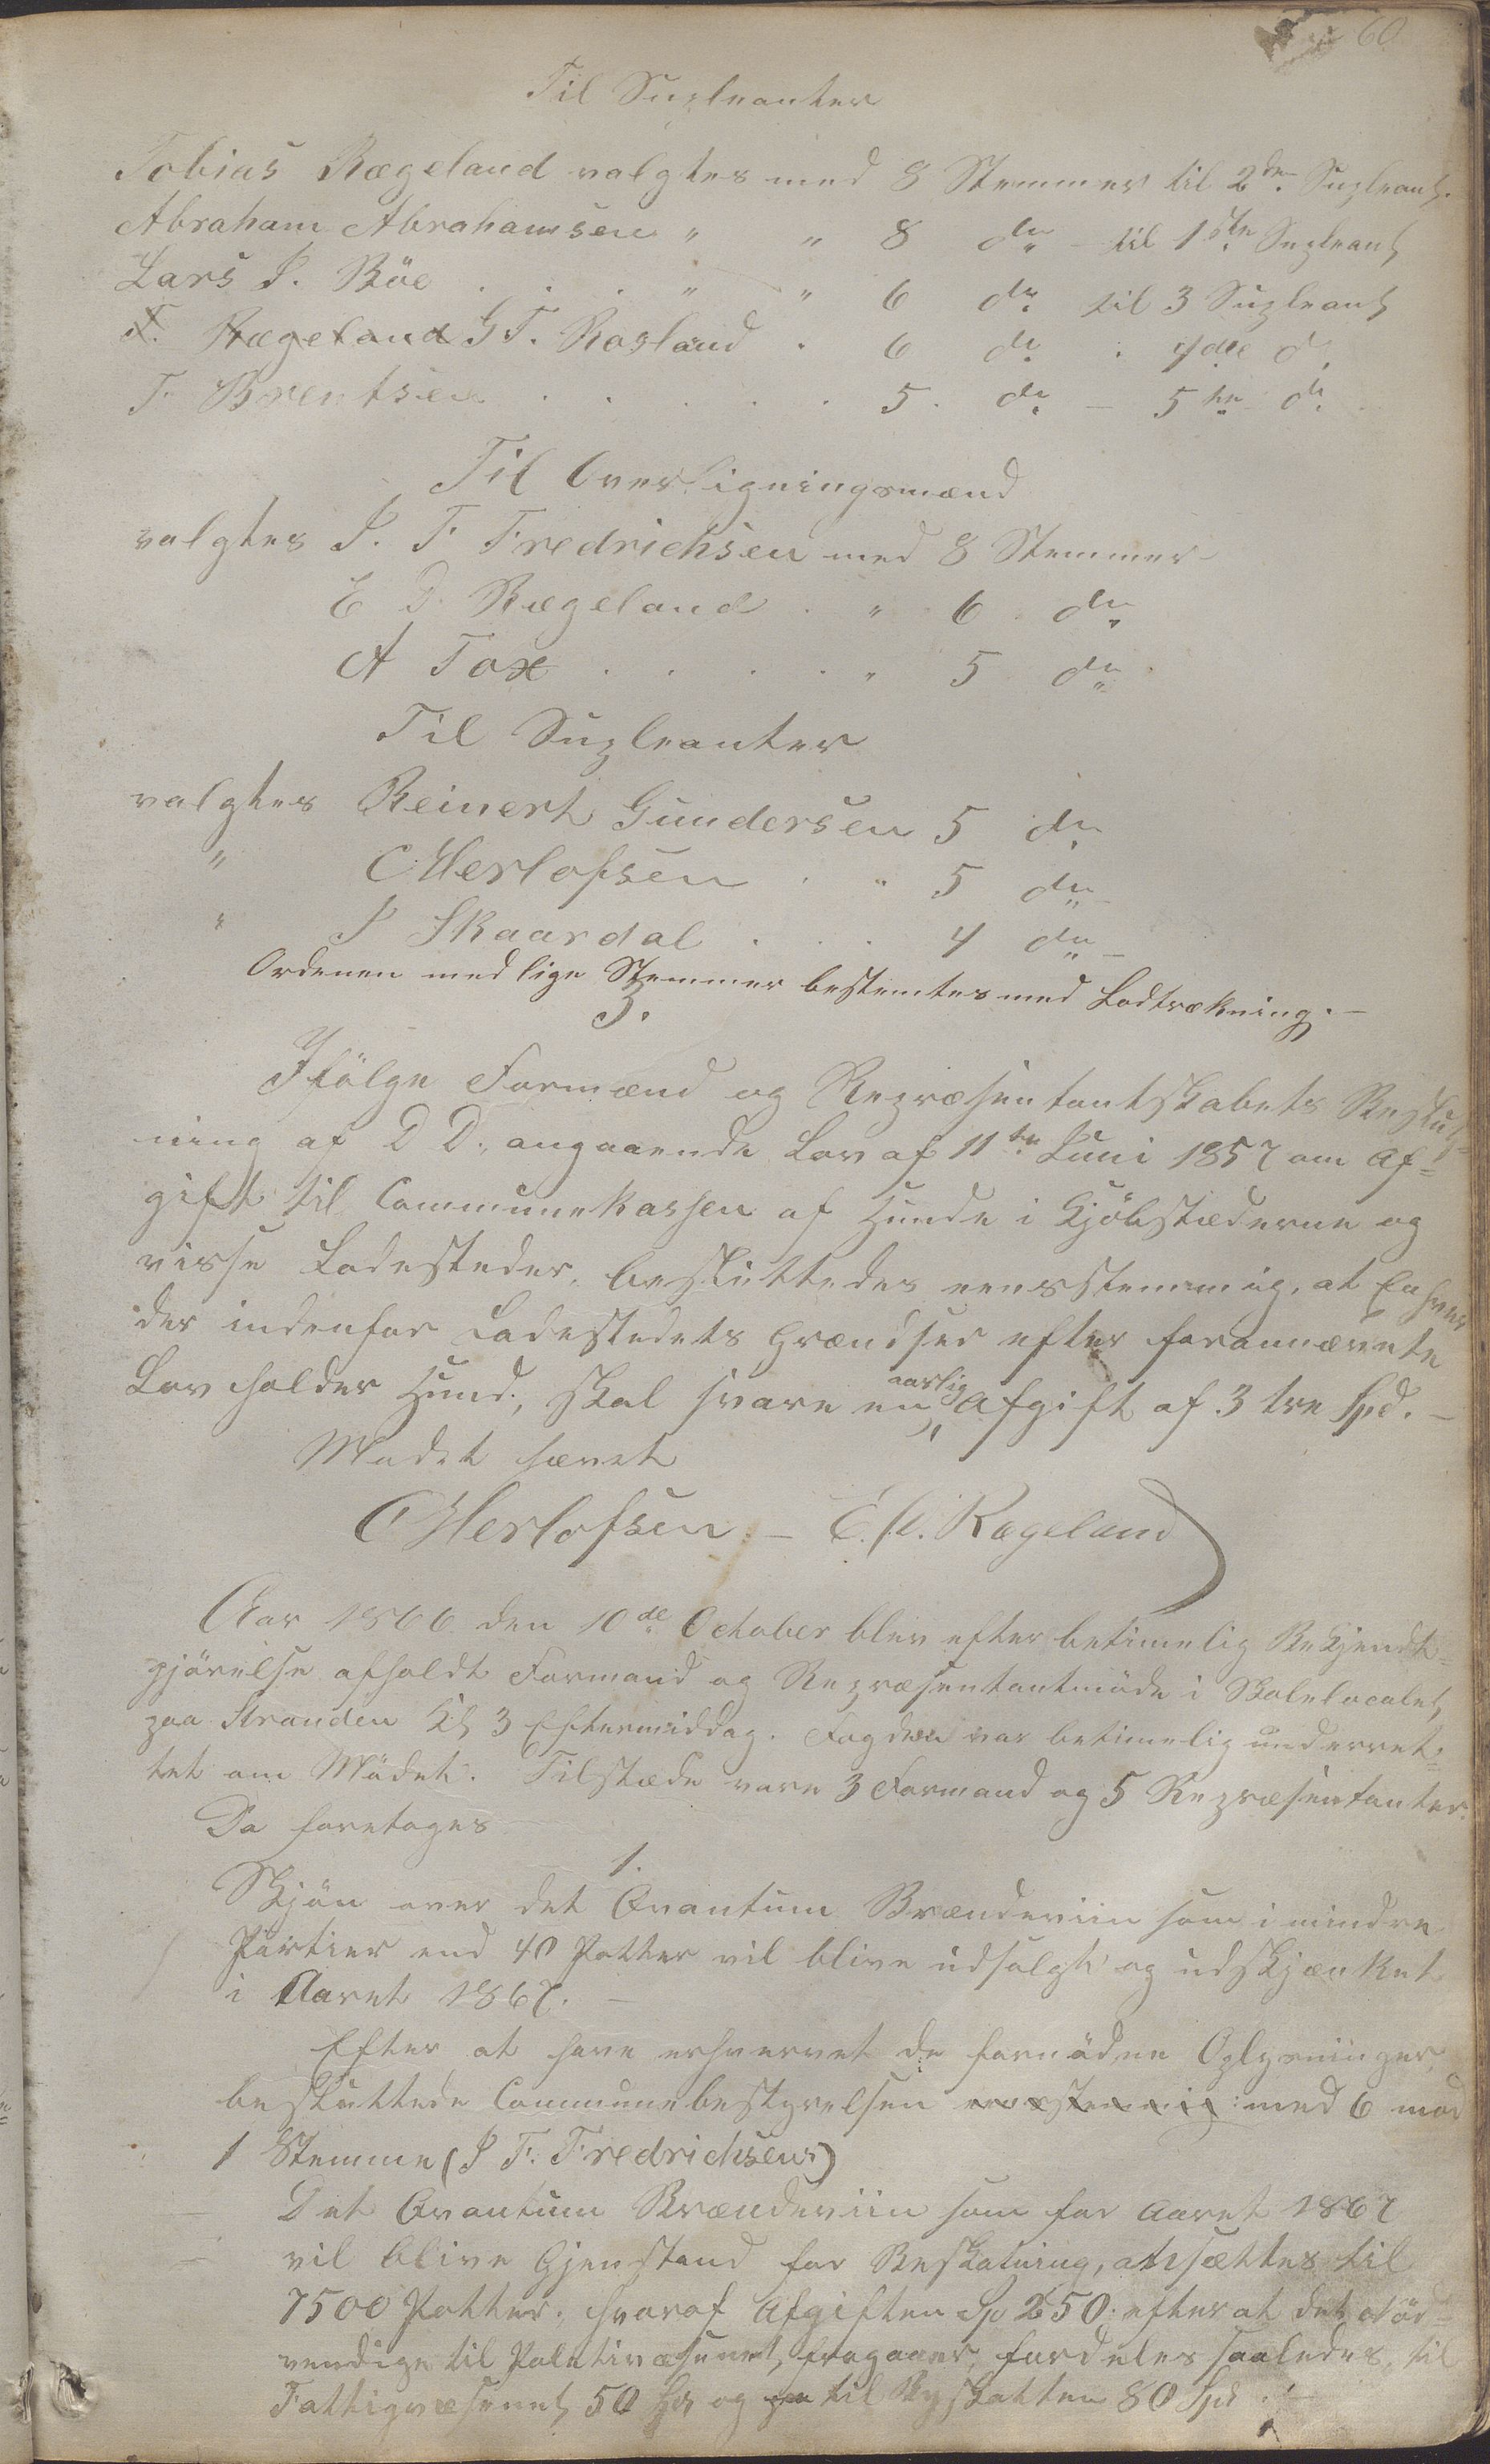 60
Til Supleanter
Tobias Rægeland valgtes med 8 Stemmer til 2den Supleant.
Abraham Abrahamsen " " 8 do - til 1ste Supleant
Lars P. Böe . . . " " 6 do til 3 Supleant
T. Rægeland G T. Rosland . 6 do . 4de do
T. Berentsen . . . . . 5. do - 5te do
Til Overligningsmænd
valgtes P. F Fredrichsen med 8 Stemmer
E D. Rægeland . " 6 do
A Fox . . . . " 5 do
Til Supleanter
valgtes Reinert Gundersen 5 do
" C Herlofsen . " 5 do -
" P Skaardal . . . 4 do -
Ordenen med lige Stemmer bestemtes med Lodtrækning. -
3.
Ifölge Formænd og Repræsentantskabets Beslut=
ning af D D. angaaende Lov af 11te Juni 1857 om Af=
gift til Communekassen af Hunde i Kjöbstæderne og
visse Ladesteder, besluttedes eensstemmig, at Enhver
der indenfor Ladestedets Grændser efter forannævnte
Lov holder Hund, skal svare en aarlig Afgift af 3 tre Spd. -
Mødet hævet
C Herlofsen - E. D. Rægeland
Aar 1866 den 10de October blev efter betimelig Bekjendt=
gjörelse afholdt Formand og Repræsentantmöde i Skolelocalet
paa Stranden Kl 3 Eftermiddag. Fogden var betimelig underret=
tet om Mödet. Tilstæde vare 3 Formænd og 5 Repræsentanter.
Da foretoges
1.
Skjön over det Qvantum Brændeviin som i mindre
Partier end 40 Potter vil blive udsalgt og udskjænket
i Aaret 1867. -
Efter at have erhvervet de fornödne Oplysninger
besluttede Communebestyrelsen eenstemmig med 6 mod
1 Stemme (P F. Fredrichsens)
Det Qvantum Brændeviin som for Aaret 1867
vil blive Gjenstand for Beskatning, ansættes til
7500 Potter. hvoraf Afgiften Sp 250. efter at det Nöd=
vendige til Politivæsenet, fragaaer, fordeles saaledes, til
Fattigvæsenet 50 Spd og til Byskatten 80 Spd. -